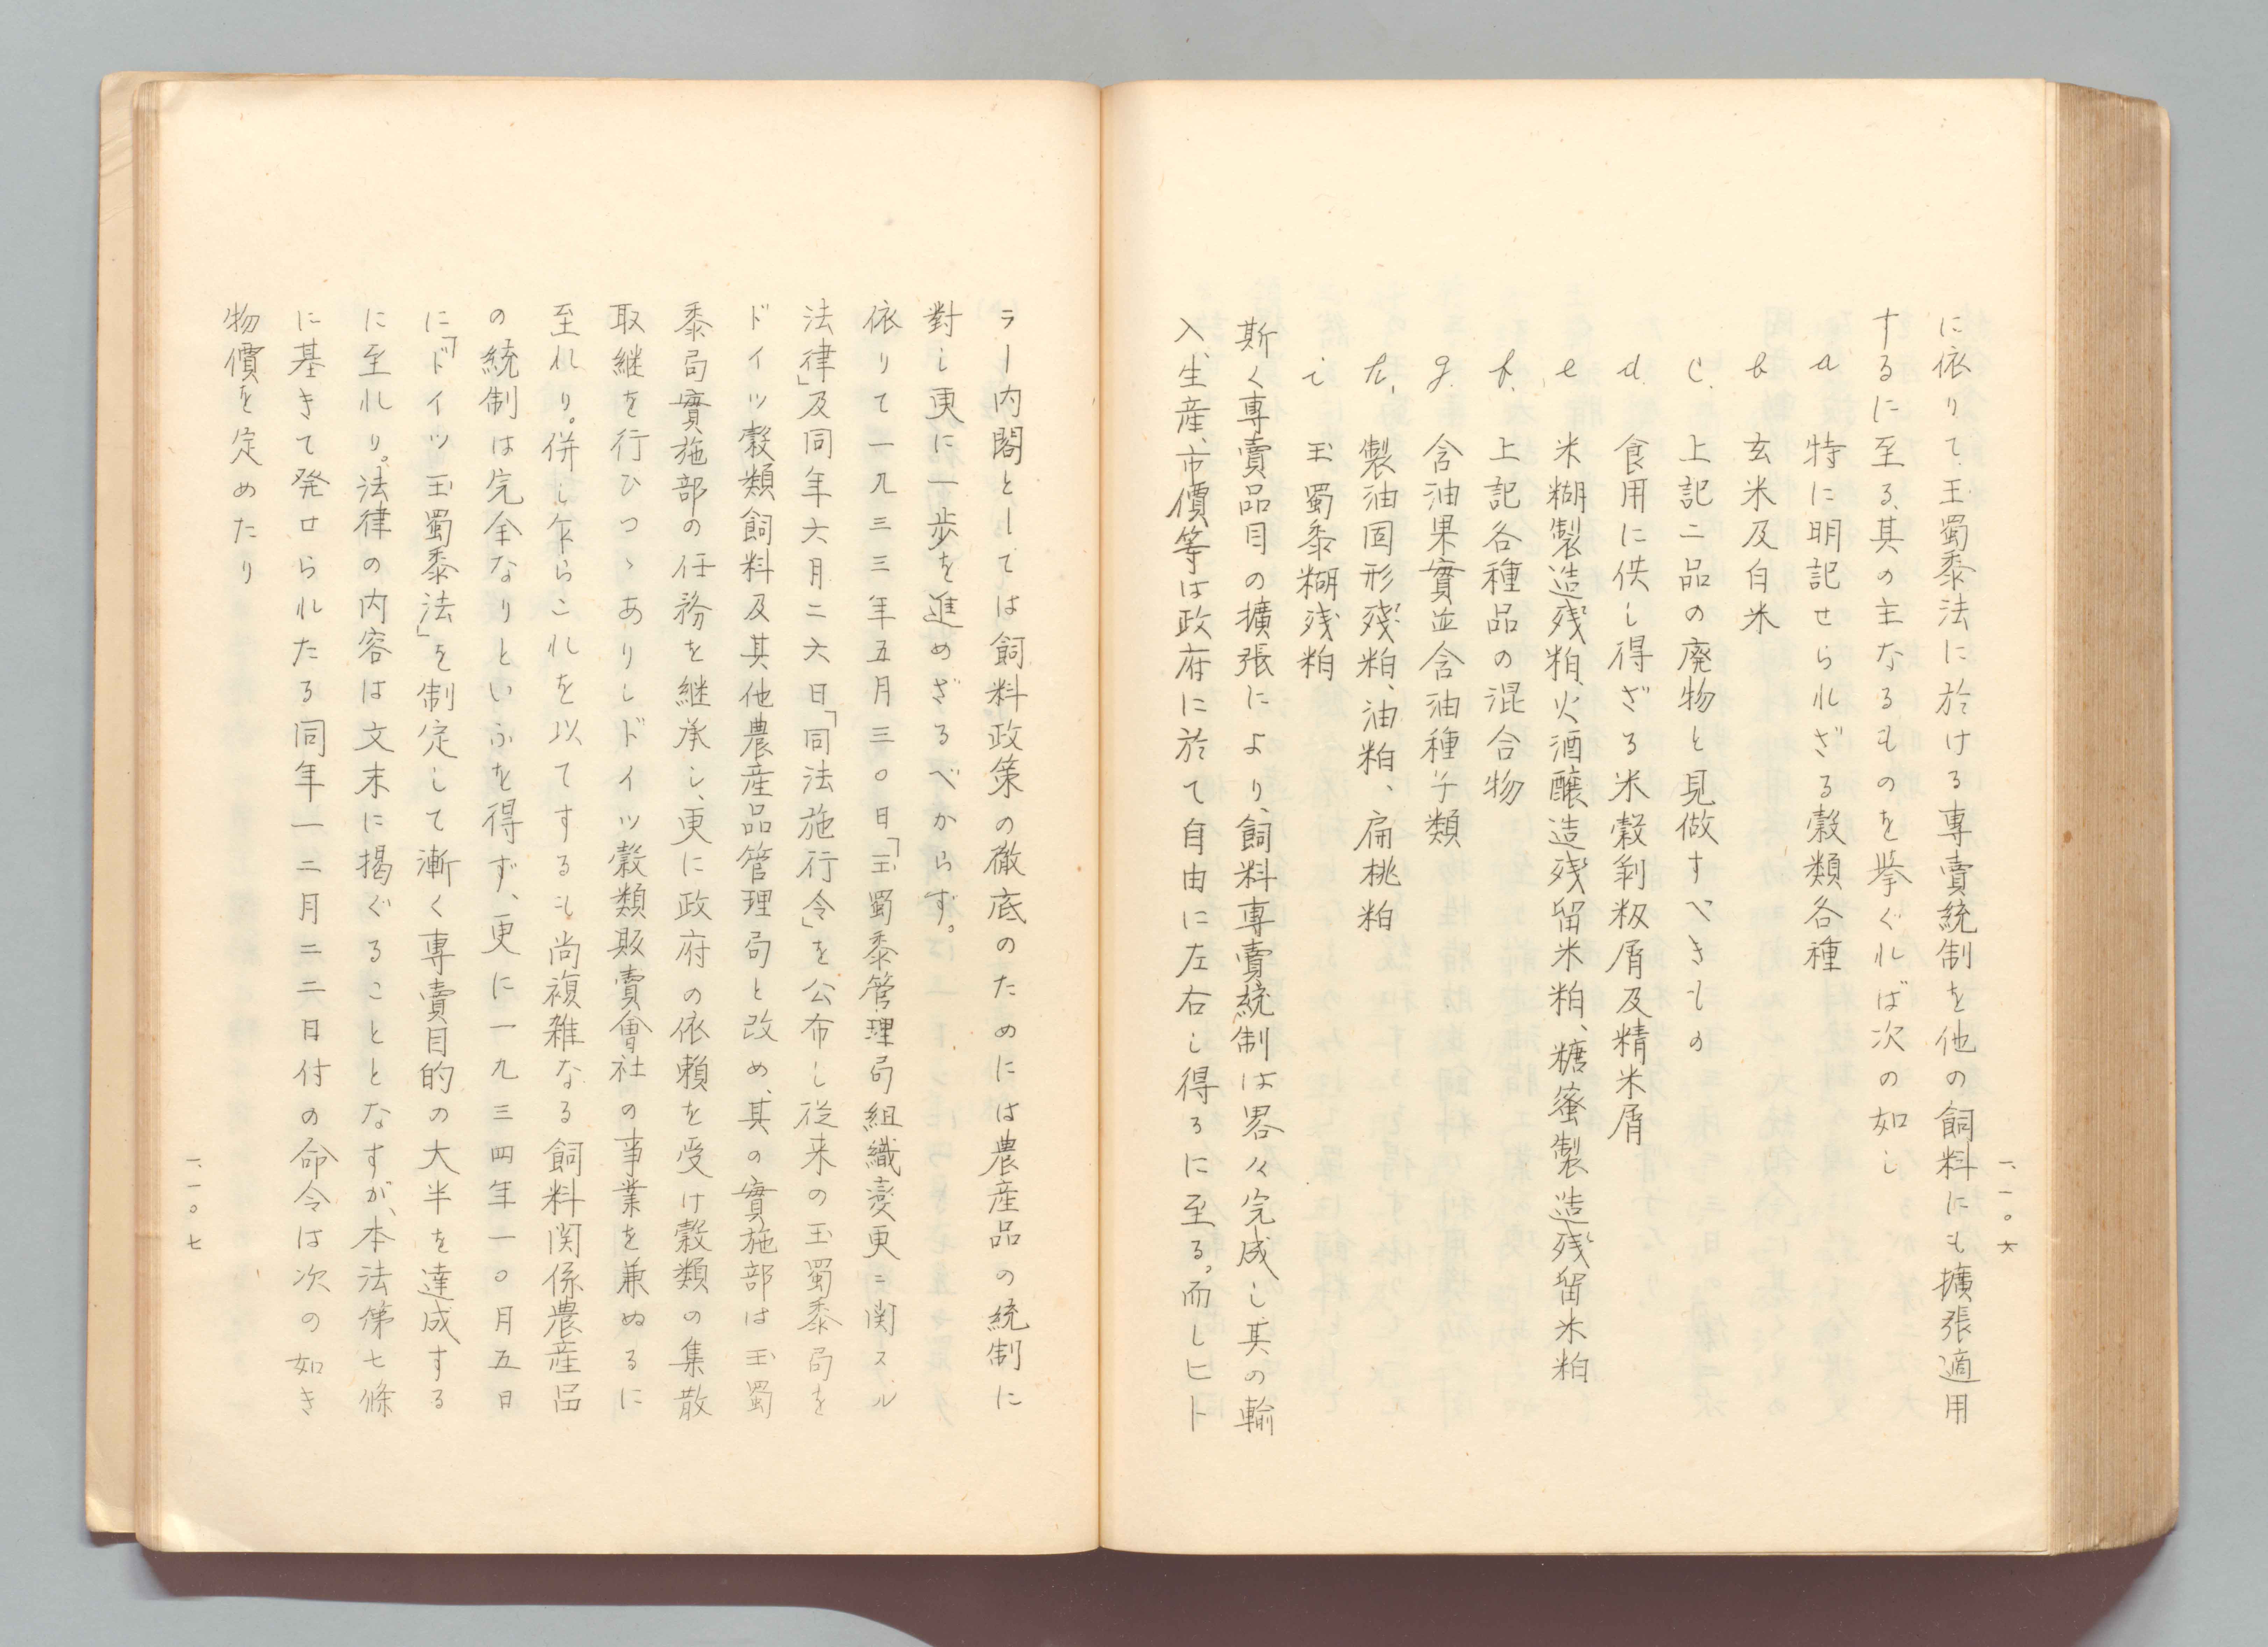 に依りて、玉蜀黍法に於ける専賣統制を他の飼料にも擴張適用
するに至る、其の主なるものを挙ぐれば次の如し
a 特に明記せられざる穀類各種
b 玄米及白米
c. 上記二品の廃物と見做すべきもの
d. 食用に供し得ざる米穀剥籾屑及精米屑
e 米糊製造残粕、火酒醸造残留米粕、糖蜜製造残留米粕
f. 上記各種品の混合物
g. 含油果實並含油種子類
h. 製油固形殘粕、油粕、扁桃粕
i 玉蜀黍糊残粕
斯く専賣品目の擴張により、飼料専賣統制は畧々完成し其の輸
入、生産、市價等は政府に於て自由に左右し得るに至る。而しヒト
一、一〇六
ラー内閣としては飼料政策の徹底のためには農産品の統制に
對し更に一歩を進めざるべからず。
依りて一九三三年五月三〇日「玉蜀黍管理局組織変更ニ関スル
法律」及同年六月二六日「同法施行令」を公布し従来の玉蜀黍局を
ドイツ穀類飼料及其他農産品管理局と改め、其の實施部は玉蜀
黍局實施部の任務を継承し、更に政府の依頼を受け穀類の集散
取継を行ひつゝありしドイツ穀類販賣會社の事業を兼ぬるに
至れり。併し乍らこれを以てするも尚複雑なる飼料関係農産品
の統制は完全なりといふを得ず、更に一九三四年一〇月五日
に「ドイツ玉蜀黍法」を制定して漸く専賣目的の大半を達成する
に至れり。法律の内容は文末に掲ぐることとなすが、本法第七條
に基きて発せられたる同年一二月二二日付の命令は次の如き
物價を定めたり
一、一〇七